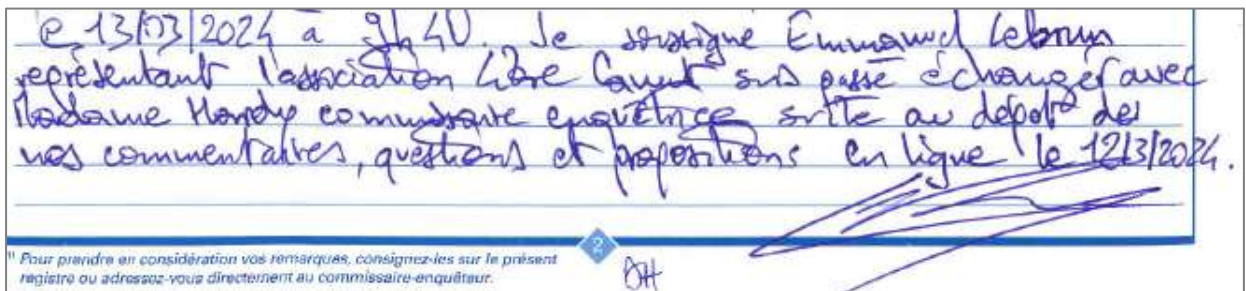 e 13/03/2024 à 9h40. Je soussigné Emmanuel Lebrun
représentant l'association Libre Canut suis passé échanger avec
Madame Hardy commissaire enquêtrice suite au dépôt de
nos commentaires, questions et propositions en ligne le 12/3/2024.
2
(1) Pour prendre en considération vos remarques, consignez-les sur le présent
registre ou adressez-vous directement au commissaire-enquêteur.
DH